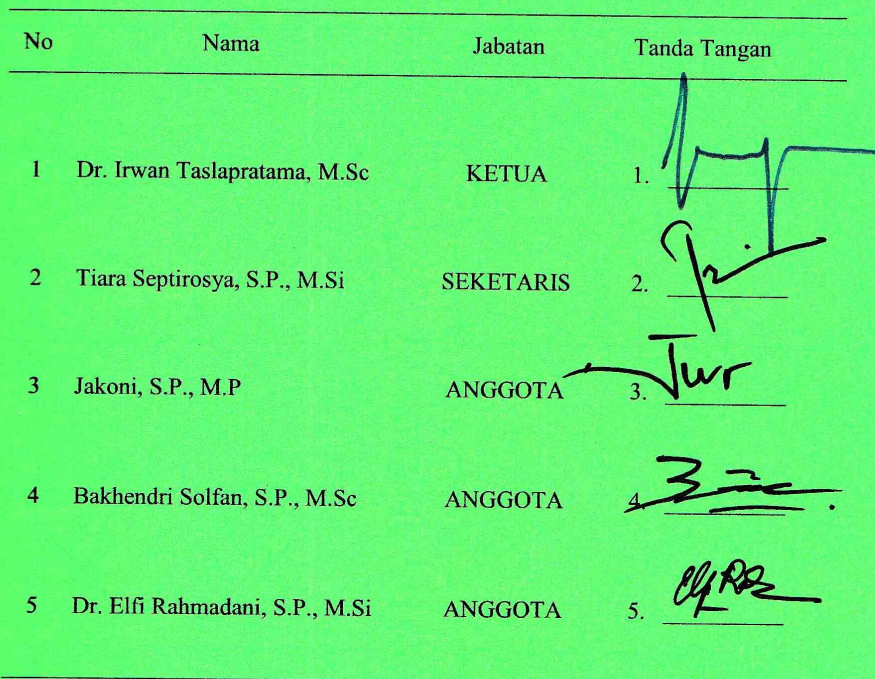 No Nama Jabatan Tanda Tangan
1 Dr. Irwan Taslapratama, M.Sc KETUA 1.
2 Tiara Septirosya, S.P., M.Si SEKETARIS 2.
3 Jakoni, S.P., M.P ANGGOTA 3.
4 Bakhendri Solfan, S.P., M.Sc ANGGOTA 4.
5 Dr. Elfi Rahmadani, S.P., M.Si ANGGOTA 5.